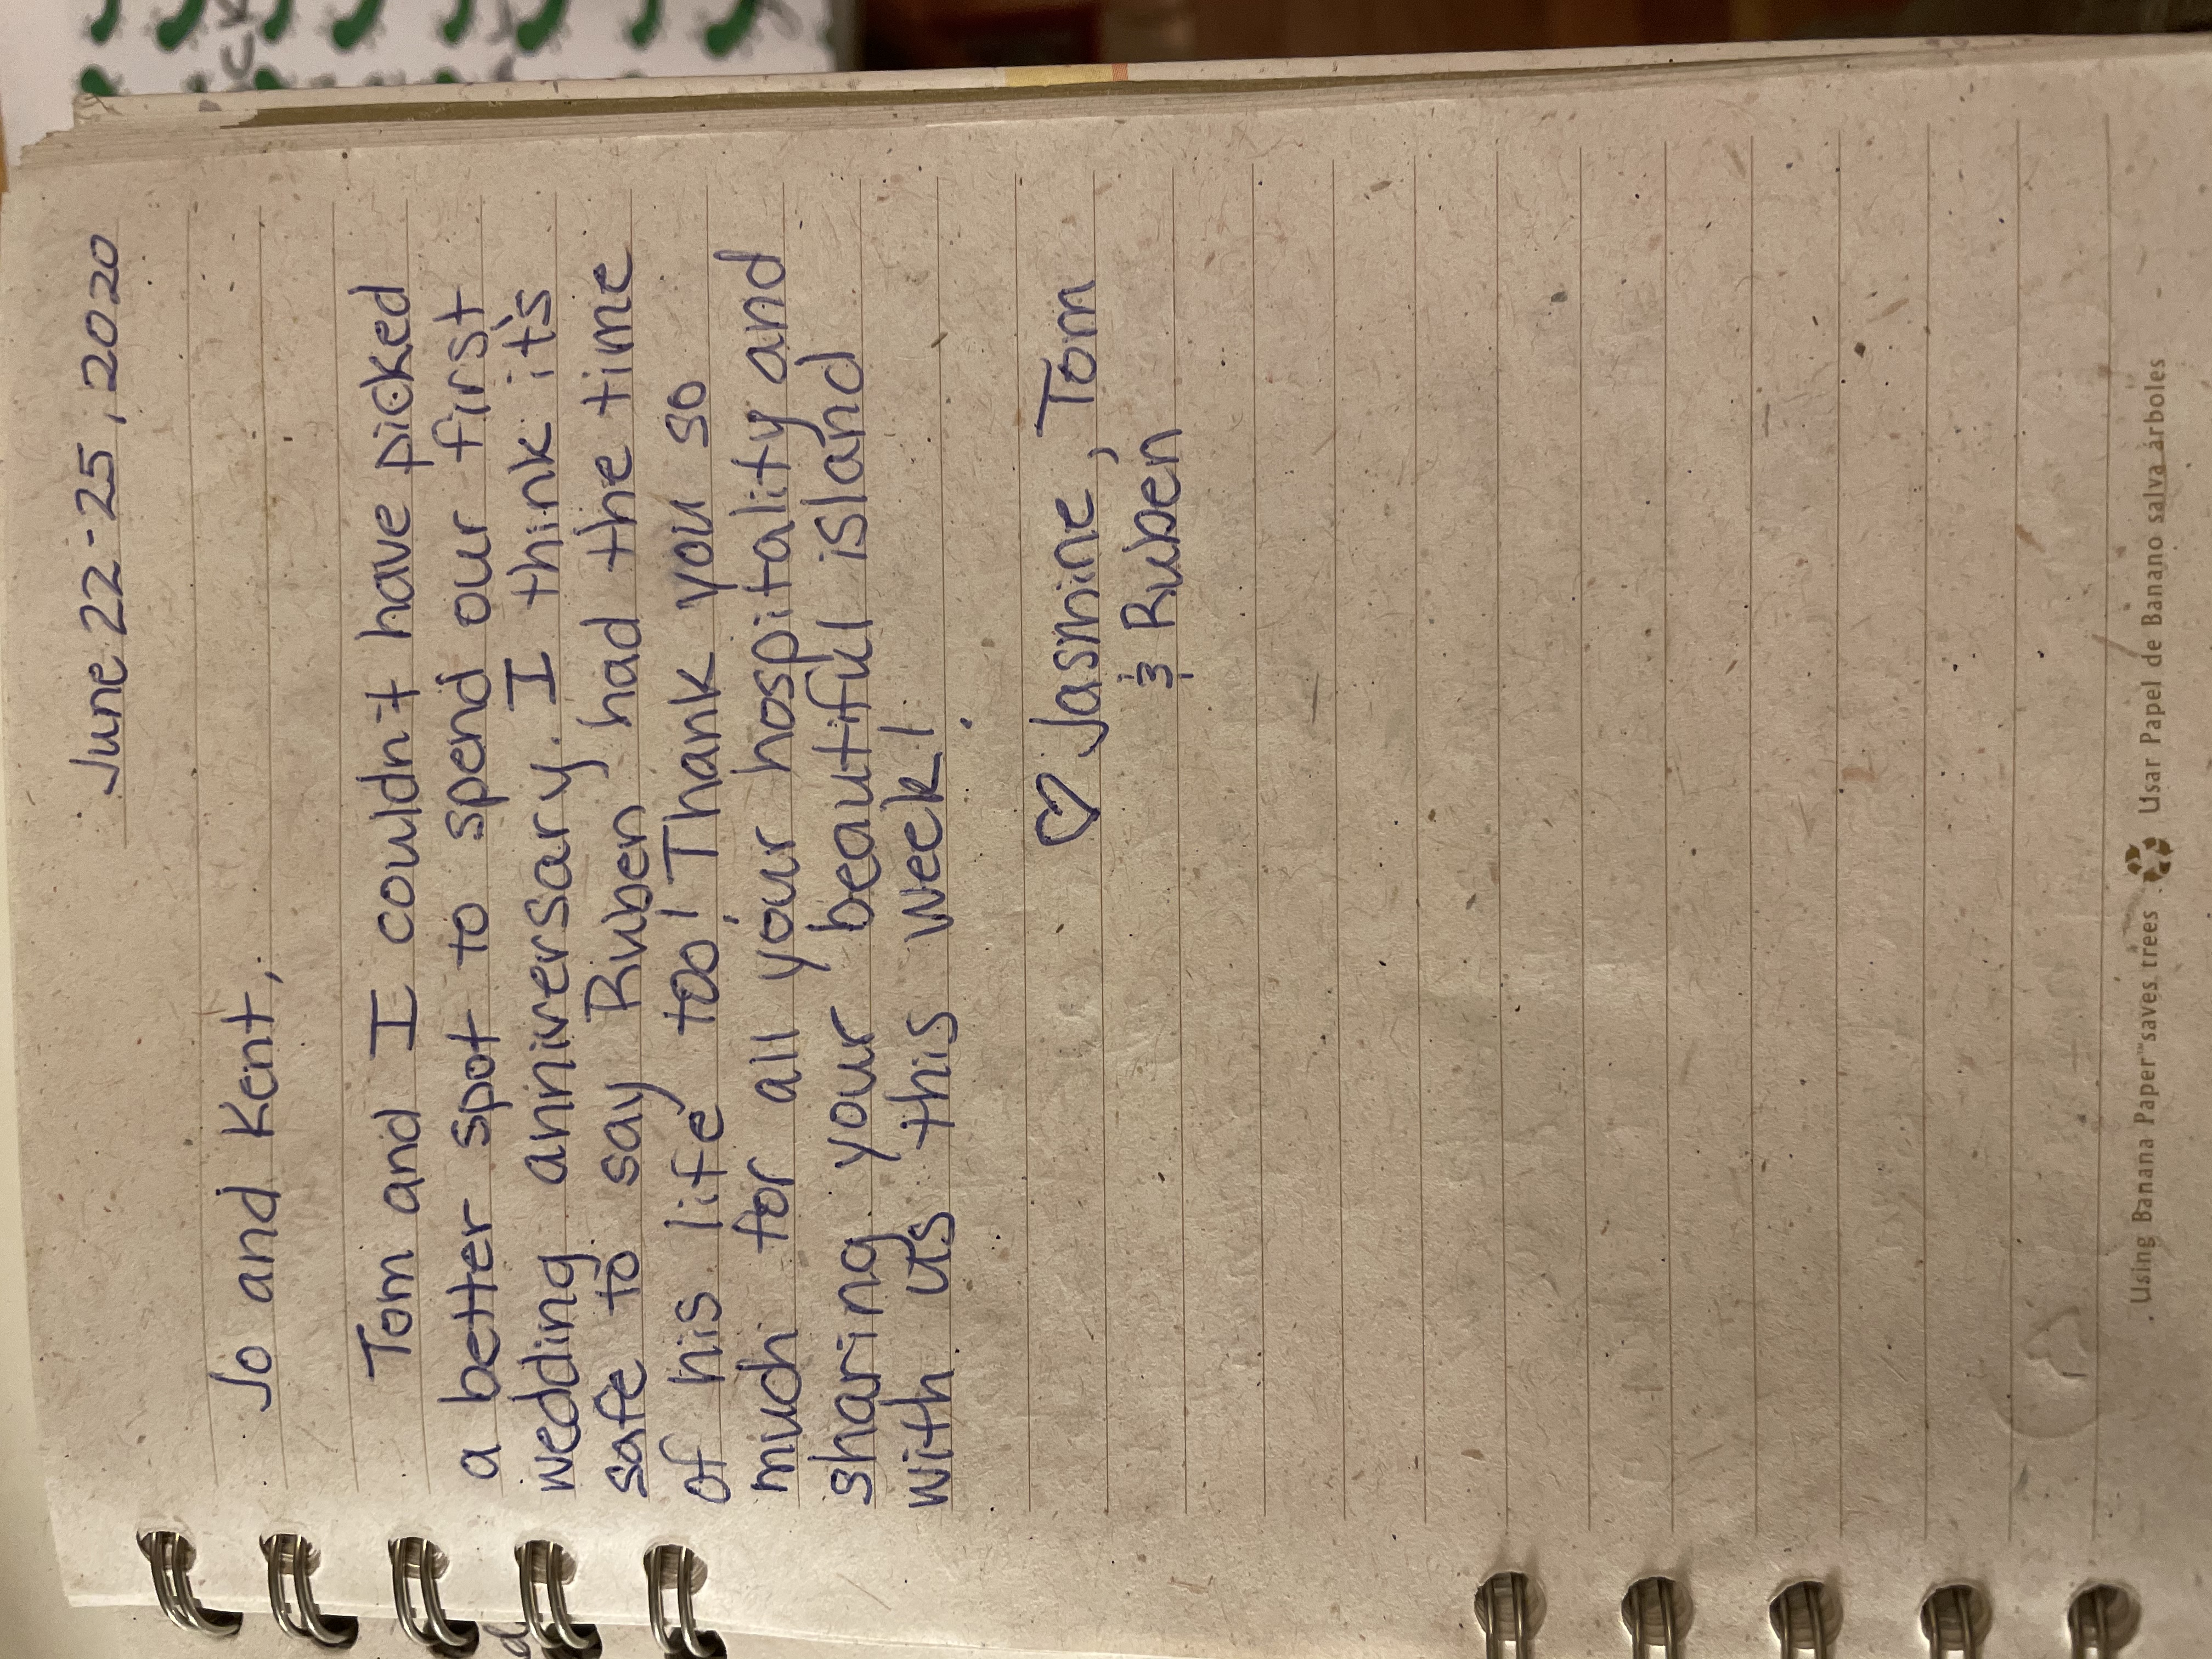 June 22-25, 2020
Jo and Kent,
Tom and I couldn't have picked
a better spot to spend our first
wedding anniversary. I think it's
safe to say Ruben had the time
of his life too! Thank you so
much for all your hospitality and
sharing your beautiful island
with us this week!
♡ Jasmine, Tom
& Ruben
Using Banana Paper™ saves trees Usar Papel de Banano salva árboles